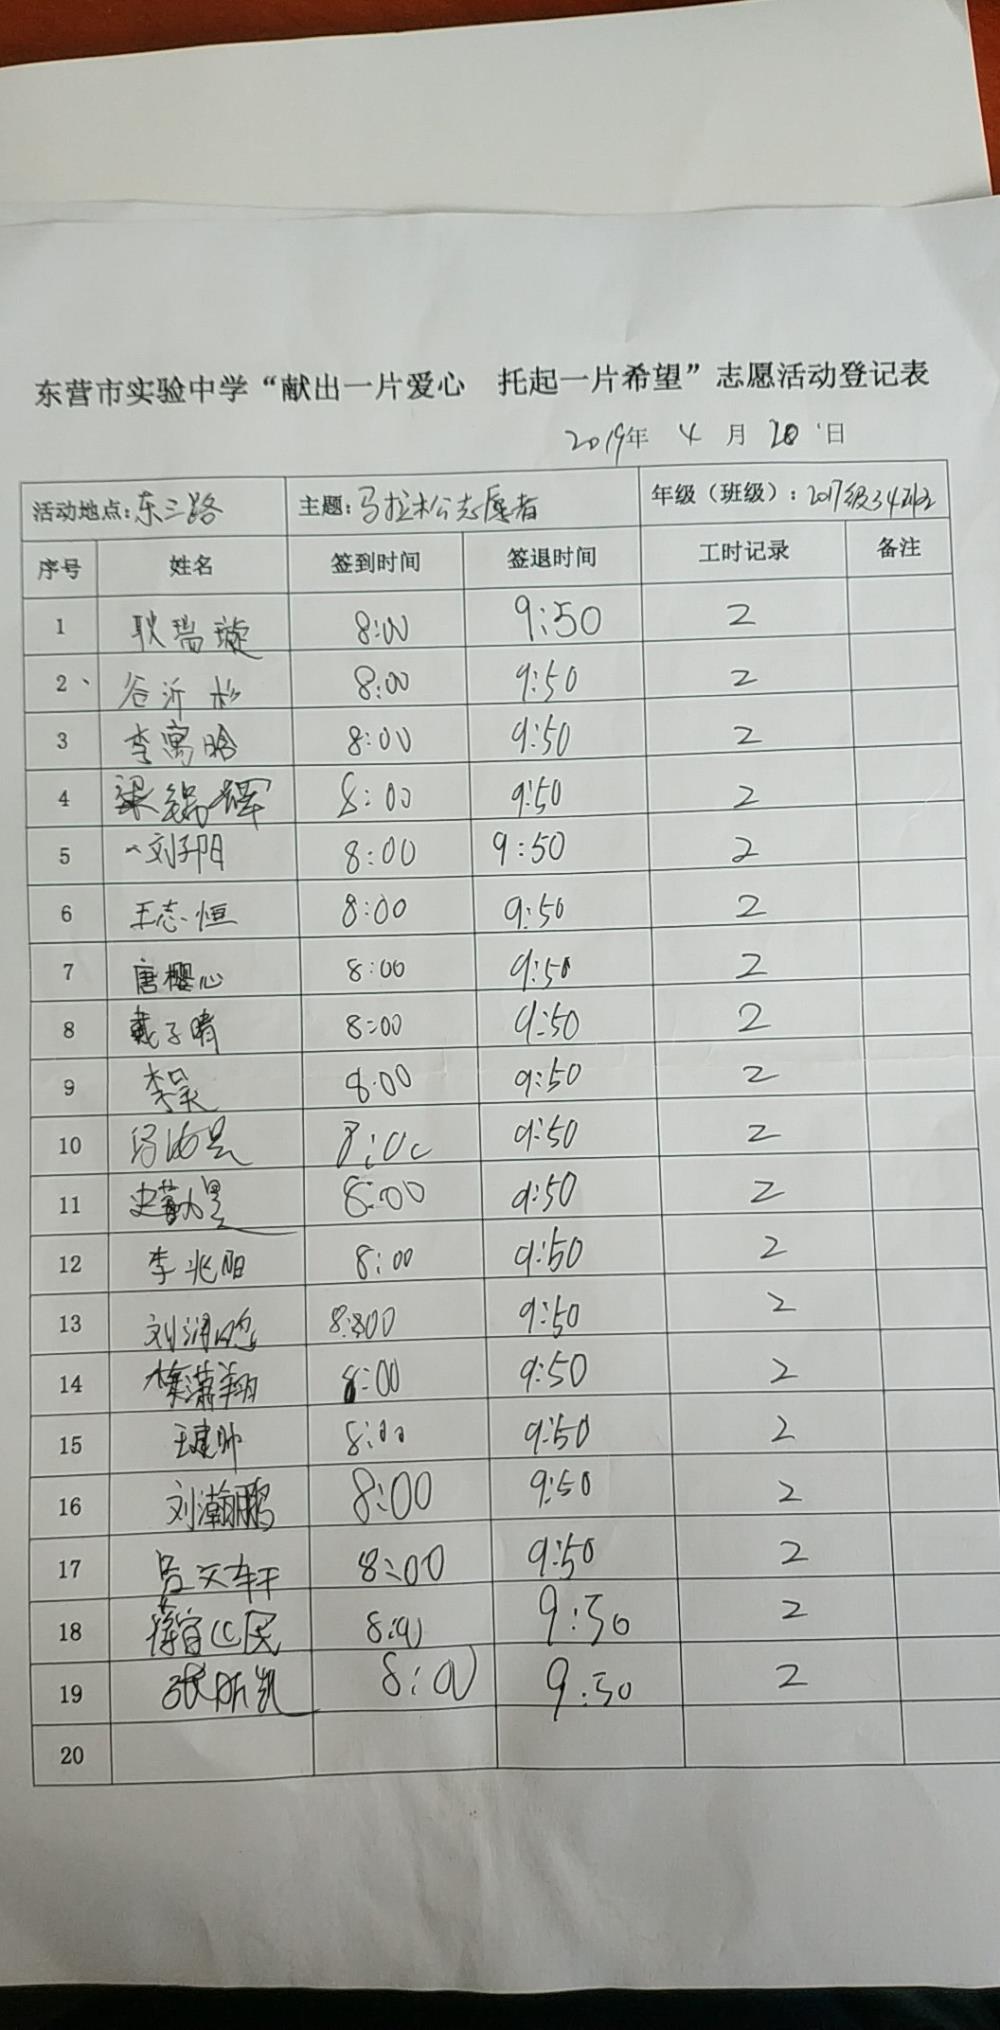 东营市实验中学“献出一片爱心 托起一片希望”志愿活动登记表
2019年 4 月 20 日
活动地点:东三路 主题:马拉松志愿者 年级（班级）:2017级34班
序号 姓名 签到时间 签退时间 工时记录 备注
1 耿瑞璇 8:00 9:50 2
2、 谷沂杉 8:00 9:50 2
3 李寓晗 8:00 9:50 2
4 梁锦辉 8:00 9:50 2
5 刘子阳 8:00 9:50 2
6 王志恒 8:00 9:50 2
7 唐樱心 8:00 9:50 2
8 戴子晴 8:00 9:50 2
9 李昊 8:00 9:50 2
10 8:00 9:50 2
11 史 8:00 9:50 2
12 李兆阳 8:00 9:50 2
13 刘润 8:00 9:50 2
14 潇翔 8:00 9:50 2
15 王建帅 8:00 9:50 2
16 刘瀚鹏 8:00 9:50 2
17 吕文轩 8:00 9:50 2
18 8:00 9:50 2
19 张凯 8:00 9:50 2
20